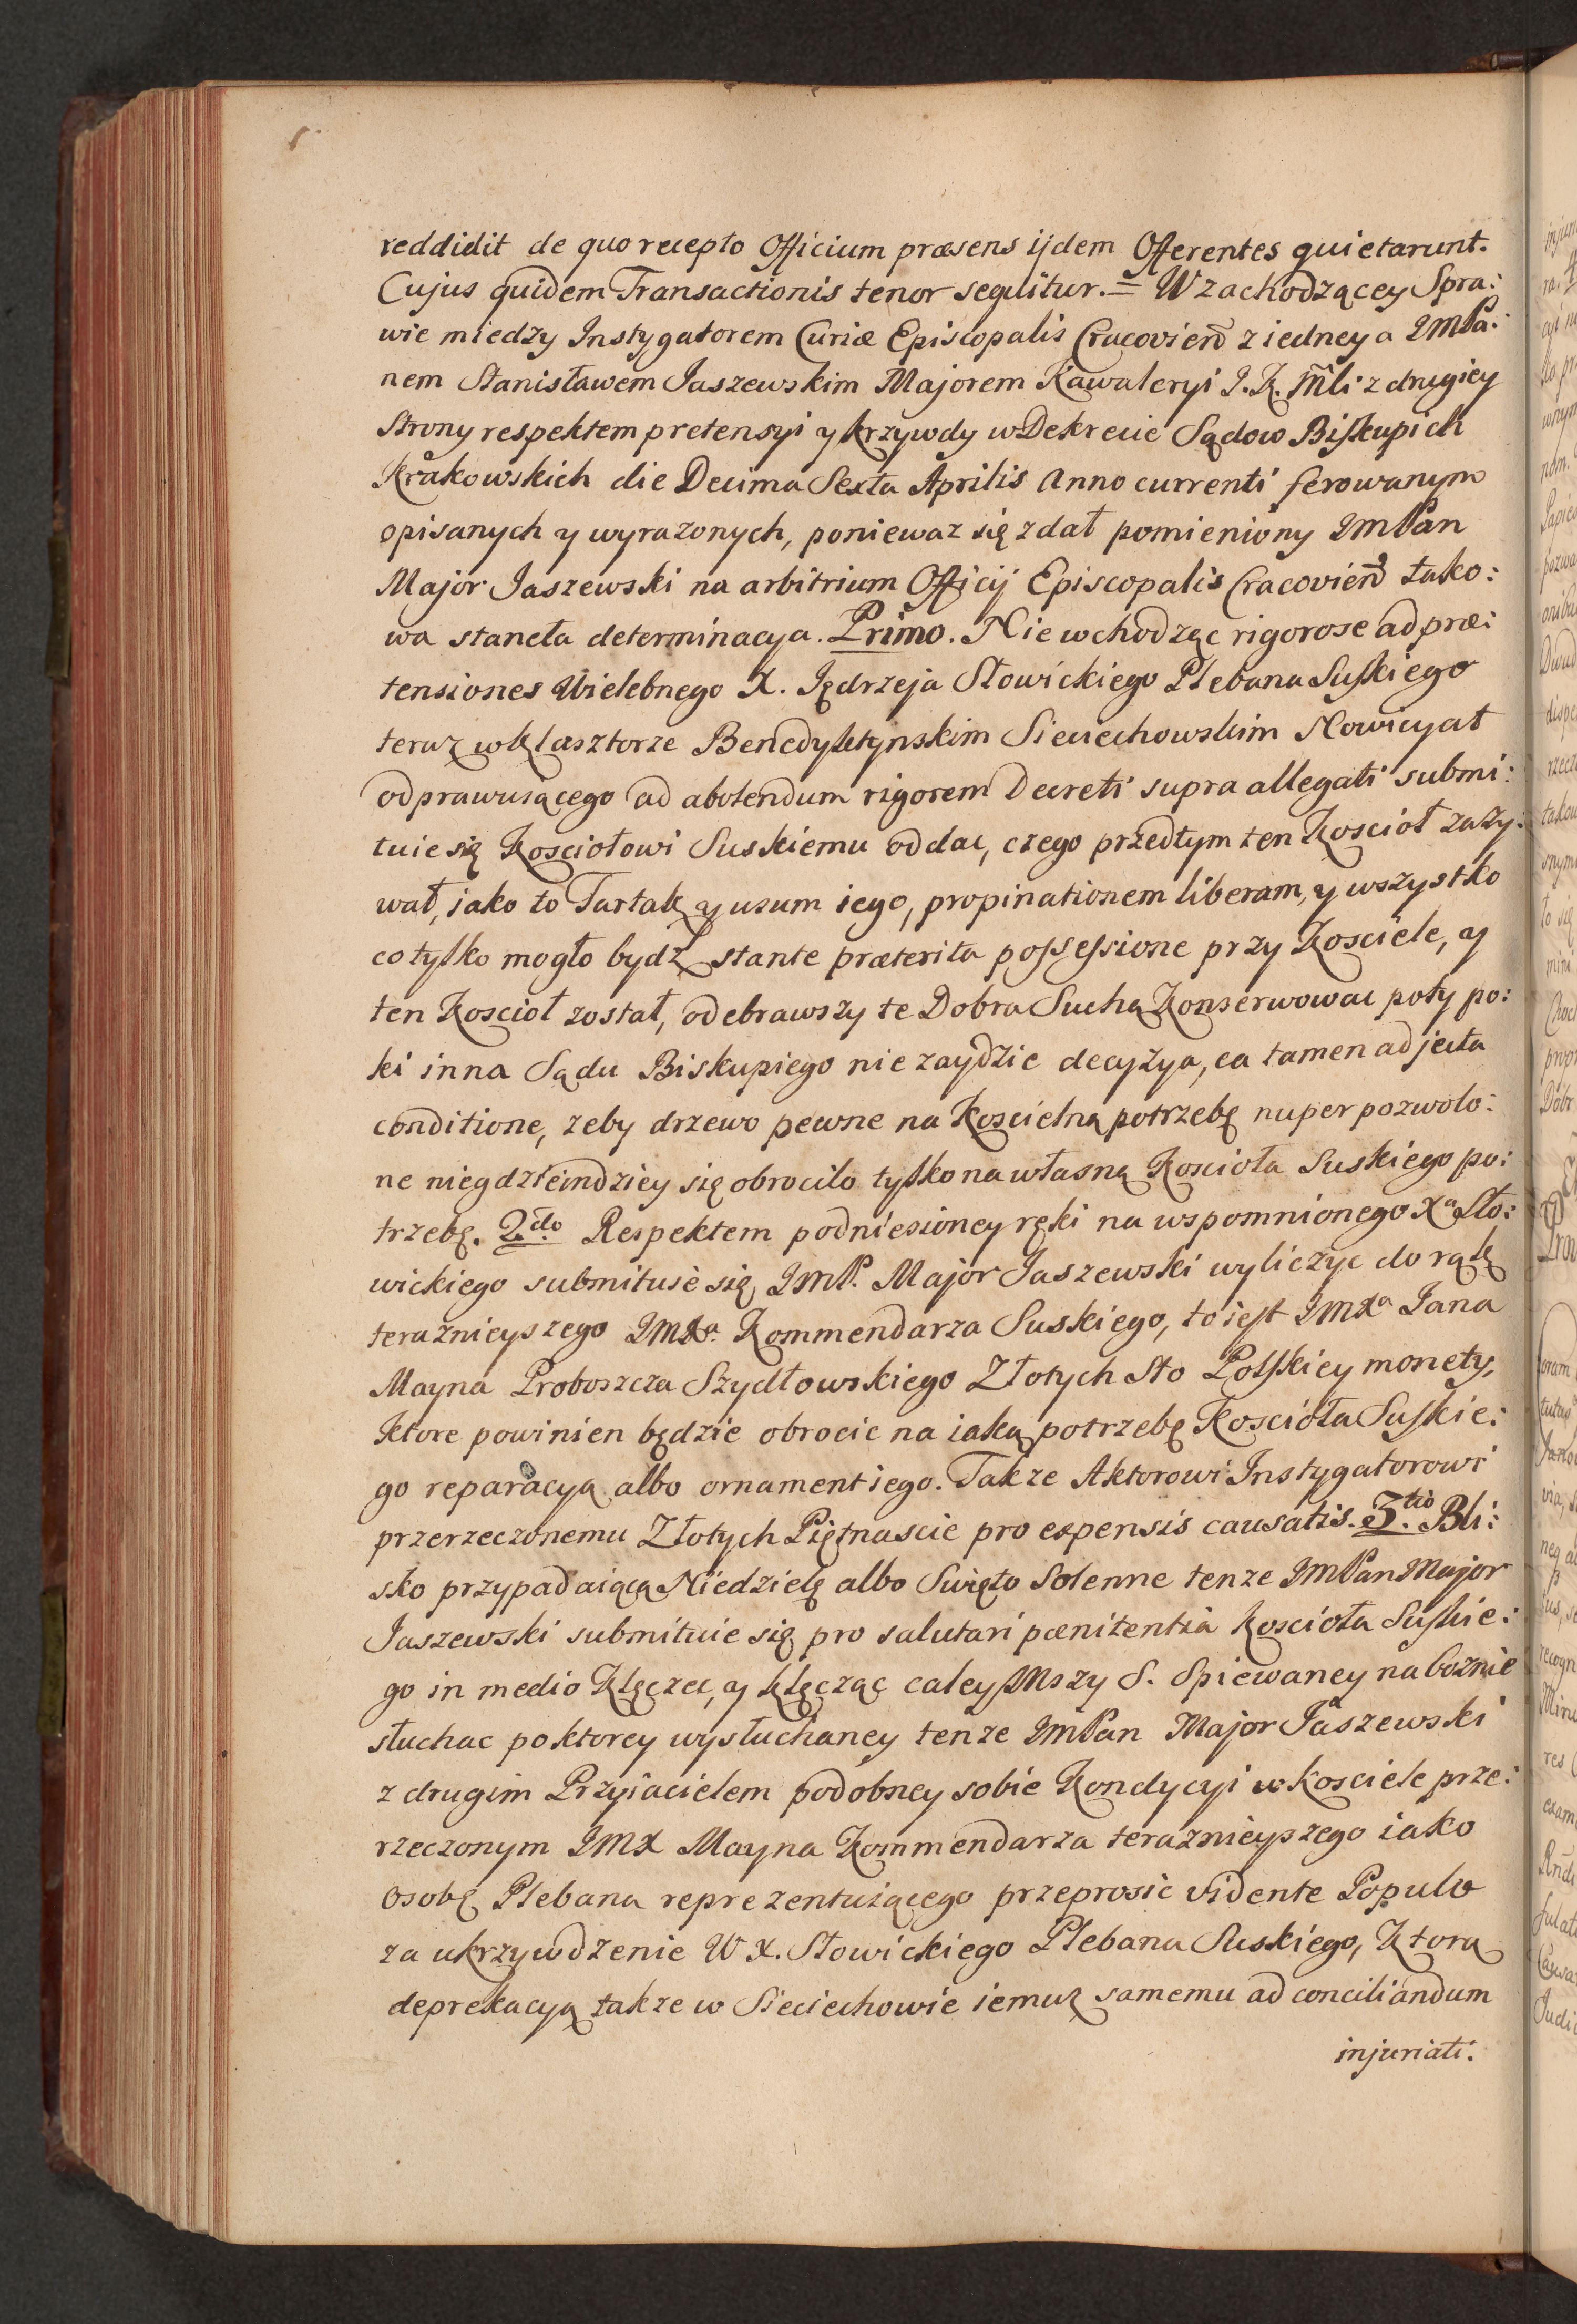 reddidit de quo recepto Officium præsens ijdem Offerentes quietarunt.
Cujus quidem Transactionis tenor sequitur. = W zachodzącey Spra:
wie miedzy Instygatorem Curiæ Episcopalis Cracovień z iedney a JMPa:
nem Stanisławem Jaszewskim Majorem Kawaleryi J. K. Mći z drugiey
Strony respektem pretensyi y krzywdy w Dekrecie Sądow Biskupich
Krakowskich die Decima Sexta Aprilis Anno currenti ferowanym
opisanych y wyrazonych, poniewaz się zdał pomieniony JmPan
Major Jaszewski na arbitrium Officij Episcopalis Cracovień tako:
wa staneła determinacya. Primo. Nie wchodząc rigorose ad præ:
tensiones Wielebnego X. Jędrzeja Słowickiego Plebana Suskiego
teraz w klasztorze Benedyktynskim Sieciechowskim Nowicyat
odprawuiącego ad abolendum rigorem Decreti supra allegati submi:
tuie się Kosciołowi Suskiemu oddac, czego przedtym ten Kosciół zazy:
wał, iako to Tartak y usum iego, propinationem liberam, y wszystko
co tylko mogło bydz stante præterita possessione przy Kosciele, y
ten Kosciół został, odebrawszy te Dobra Sucha Konserwowac poty po:
ki inna Sądu Biskupiego nie zaydzie decyzya, ea tamen adjecta
conditione, zeby drzewo pewne na Koscielną potrzebę nuper pozwolo:
ne niegdzieindziey się obrociło tylko na własną Kosciola Suskiego po:
trzebę. 2do. Respektem podniesioney ręki na wspomnionego Xa Sło:
wickiego submituie się JMP. Major Jaszewski wyliczyc do rąk
teraznieyszego JMXa. Kommendarza Suskiego, to iest JMXa Jana
Mayna Proboszcza Szydłowskiego Złotych Sto Polskiey monety,
Ktore powinien będzie obrocic na iaką potrzebę Kosciola Suskie:
go reparacyą albo ornament iego. Takze Aktorowi Instygatorowi
przerzeczonemu Złotych Piętnascie pro expensis causatis. 3tio. Bli:
sko przypadaiącą Niedzielę albo Swięto Solenne tenze JMPan Major
Jaszewski submituie się pro salutari pœnitentia Kosciola Suskie:
go in medio Klęczec, y klęcząc caley Mszy S. Spiewaney naboznie
słuchac po ktorey wysłuchaney tenze JmPan Major Jaszewski
z drugim Przyiacielem podobney sobie Kondycyi w Kosciele prze:
rzeczonym JMX Mayna Kommendarza teraznieyszego iako
Osobę Plebana reprezentuiącego przeprosic vidente Populo
za ukrzywdzenie W X. Słowickiego Plebana Suskiego, Ktorą
deprekacyą takze w Sieciechowie iemuz samemu ad conciliandum
injuriati: